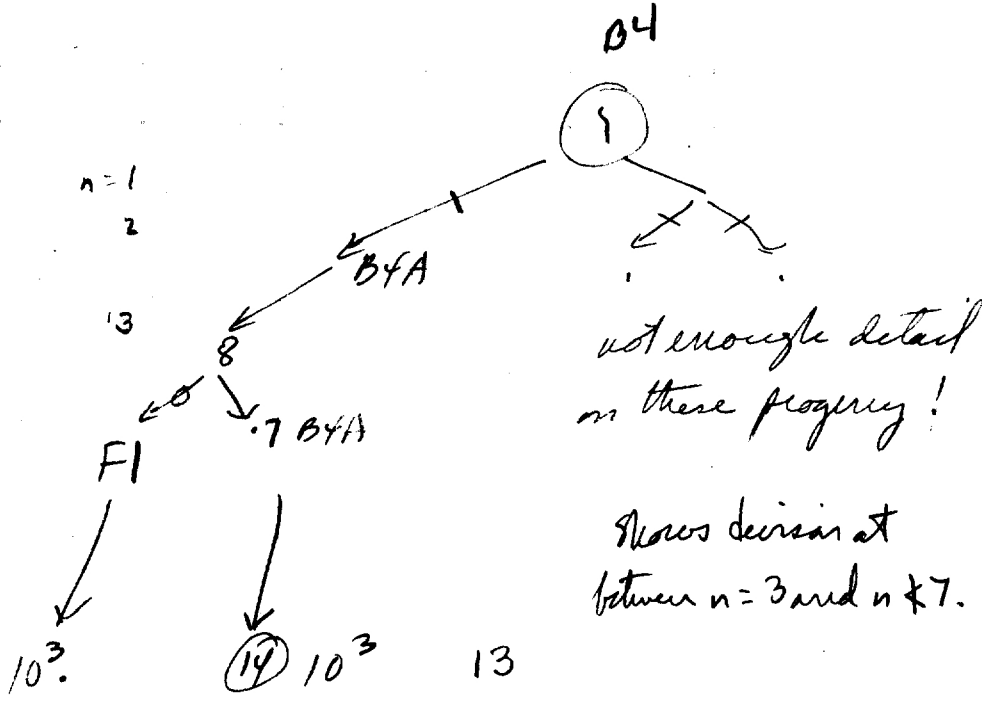 B4
n = 1
2
B4A
13
8
not enough detail
on these progeny!
.7 B4A
F1
Shows division at
between n = 3 and n ≮ 7.
10³.
14 10³ 13